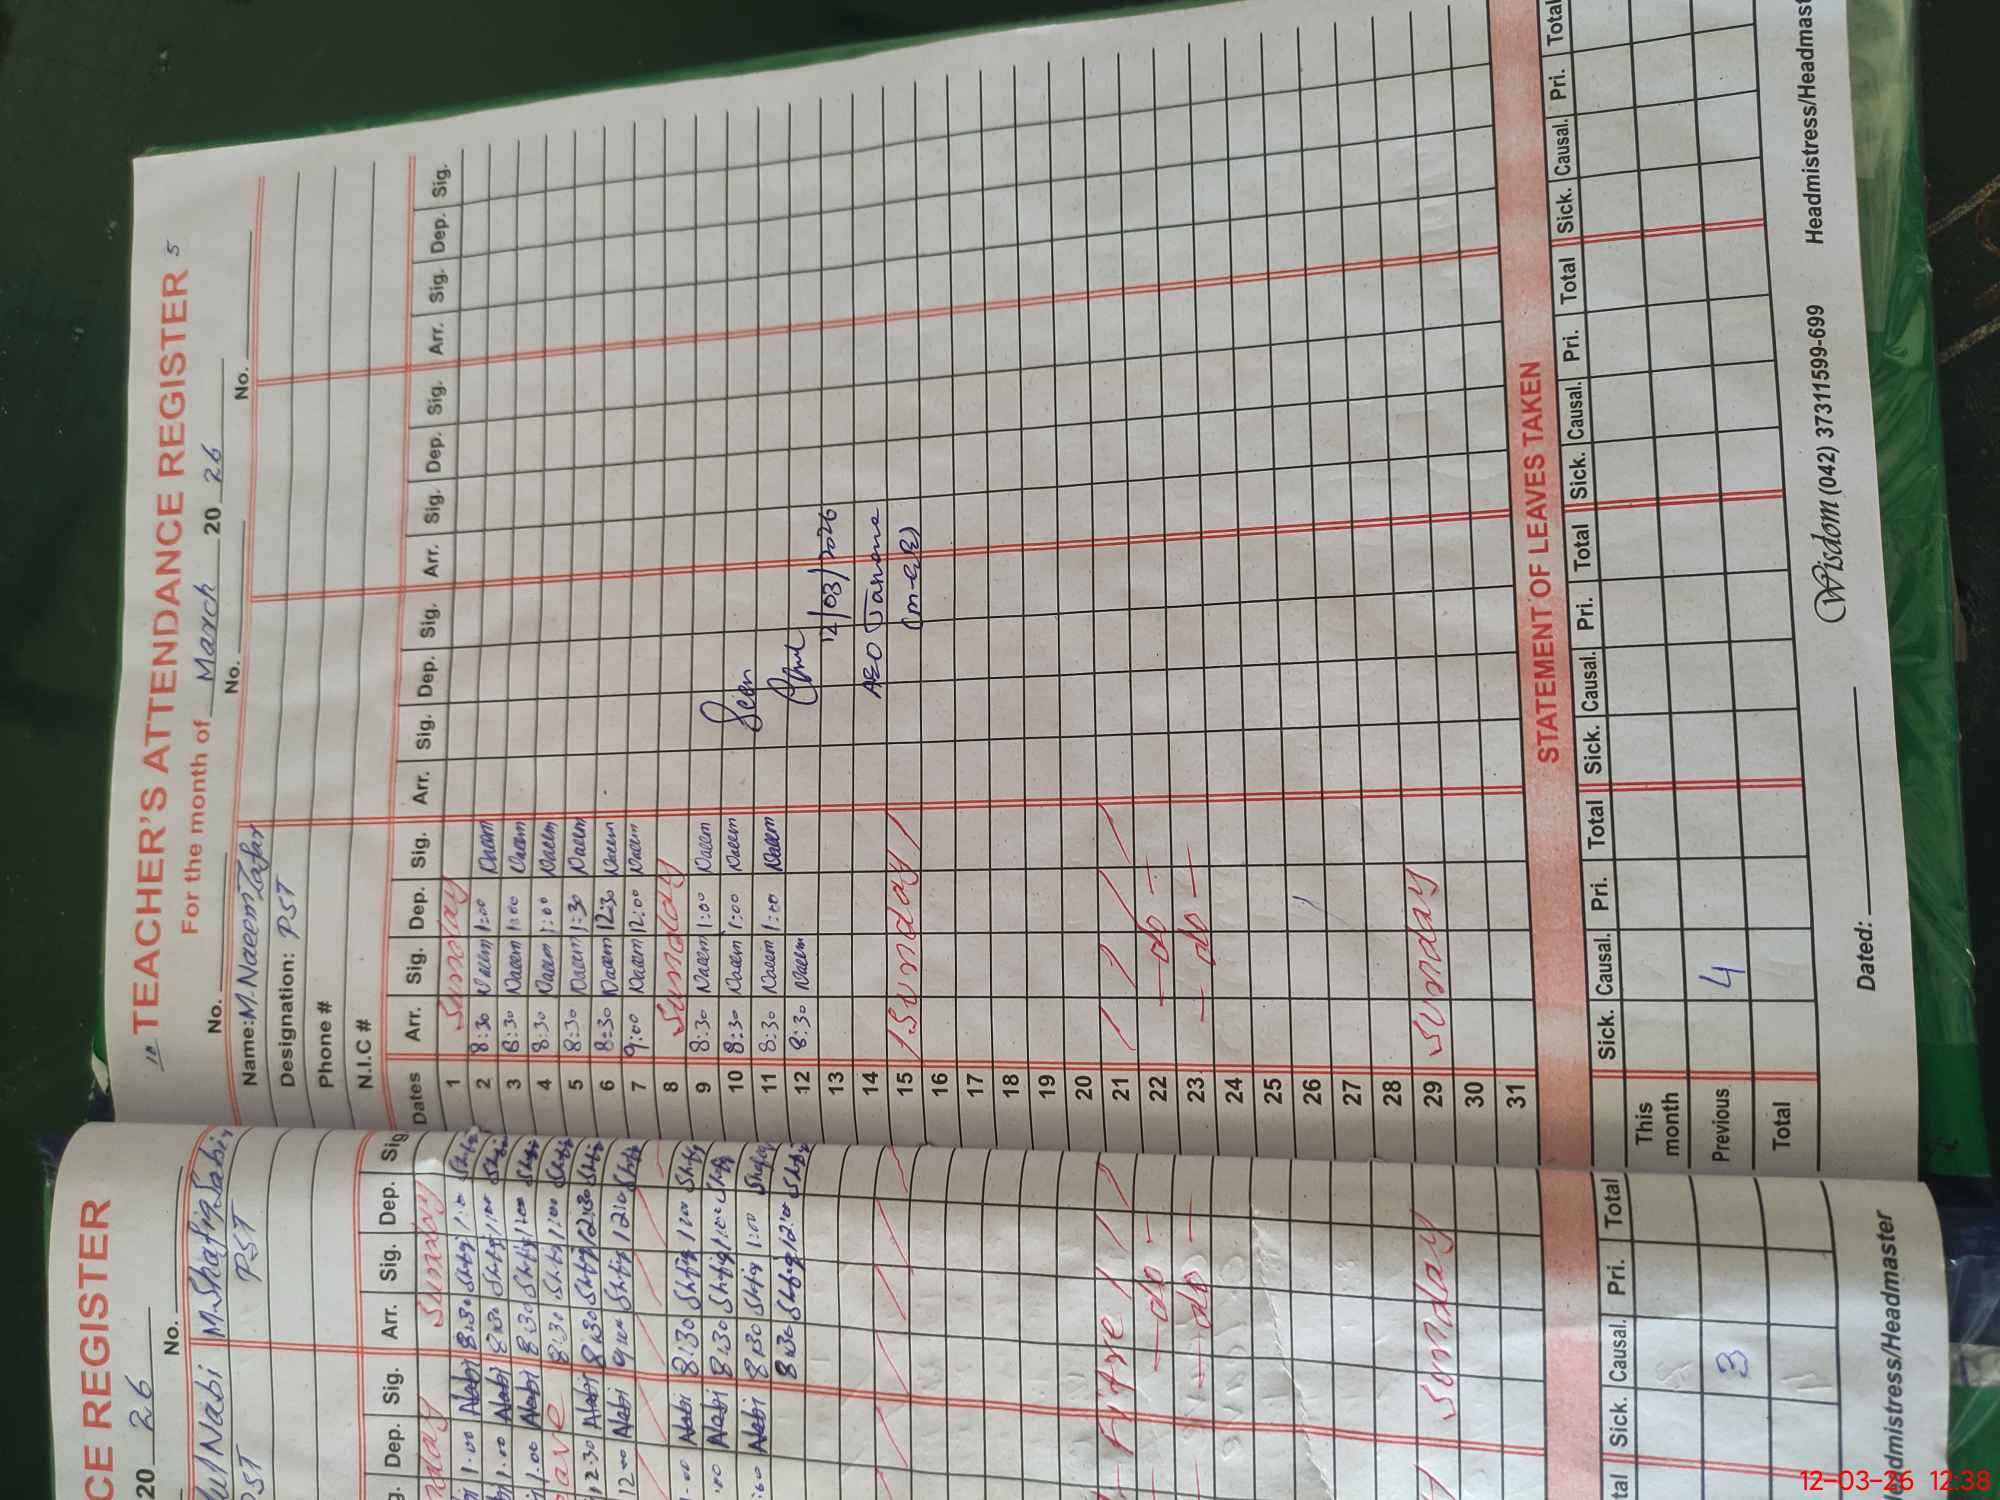 10 TEACHER'S ATTENDANCE REGISTER 5
For the month of March 2026
No. No. No.
Name: M.Naeem Zafar
Designation: PST
Phone #
N.I.C #
Dates Arr. Sig. Dep. Sig. Arr. Sig. Dep. Sig. Arr. Sig. Dep. Sig. Arr. Sig. Dep. Sig.
1 Sunday
2 8:30 Naeem 1:00 Naeem
3 8:30 Naeem 1:00 Naeem
4 8:30 Naeem 1:00 Naeem
5 8:30 Naeem 1:30 Naeem
6 8:30 Naeem 12:30 Naeem
7 9:00 Naeem 12:00 Naeem
8 Sunday
9 8:30 Naeem 1:00 Naeem
10 8:30 Naeem 1:00 Naeem Seen
11 8:30 Naeem 1:00 Naeem
12 8:30 Naeem
13 12/03/2026
14 AEO
15 Sunday (m-EE)
16
17
18
19
20
21
22 do
23 do
24
25
26
27
28
29 Sunday
30
31
STATEMENT OF LEAVES TAKEN
Sick. Causal. Pri. Total Sick. Causal. Pri. Total Sick. Causal. Pri. Total Sick. Causal. Pri. Total
This month
Previous 4
Total
Dated: Wisdom (042) 37311599-699 Headmistress/Headmast
CE REGISTER
2026
No.
Nabi M.Shafiq Sabir
PST PST
Dep. Sig. Arr. Sig. Dep. Sig
Sunday
1.00 Nabi 8:30 Shfiq 1:00 Shfiq
1.00 Nabi 8:30 Shfiq 1:00 Shfiq
1.00 Nabi 8:30 Shfiq 1:00 Shfiq
8:30 Shfiq 1:00 Shfiq
12.30 Nabi 8:30 Shfiq 12:30 Shfiq
12.00 Nabi 9:00 Shfiq Shfiq
Nabi 8:30 Shfiq 1:00 Shfiq
Nabi 8:30 Shfiq 1:00 Shfiq
Nabi 8:30 Shfiq 1:00 Shfiq
8:30 Shfiq 12:00 Shfiq
do
do
Sunday
tal Sick. Causal. Pri. Total
3
eadmistress/Headmaster
12-03-26 12:38